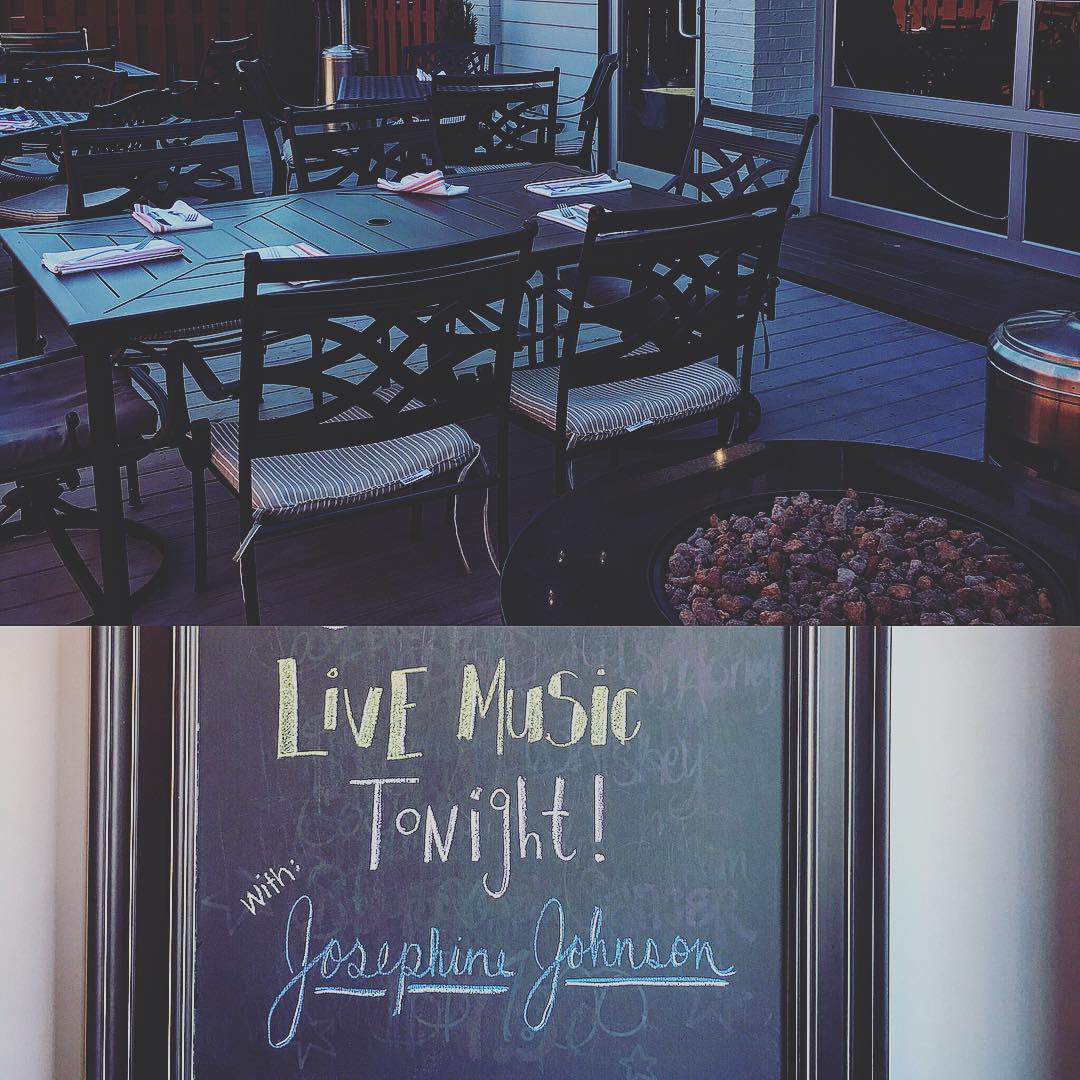 LivE MuSic
ToNight!
with:
Josephine Johnson